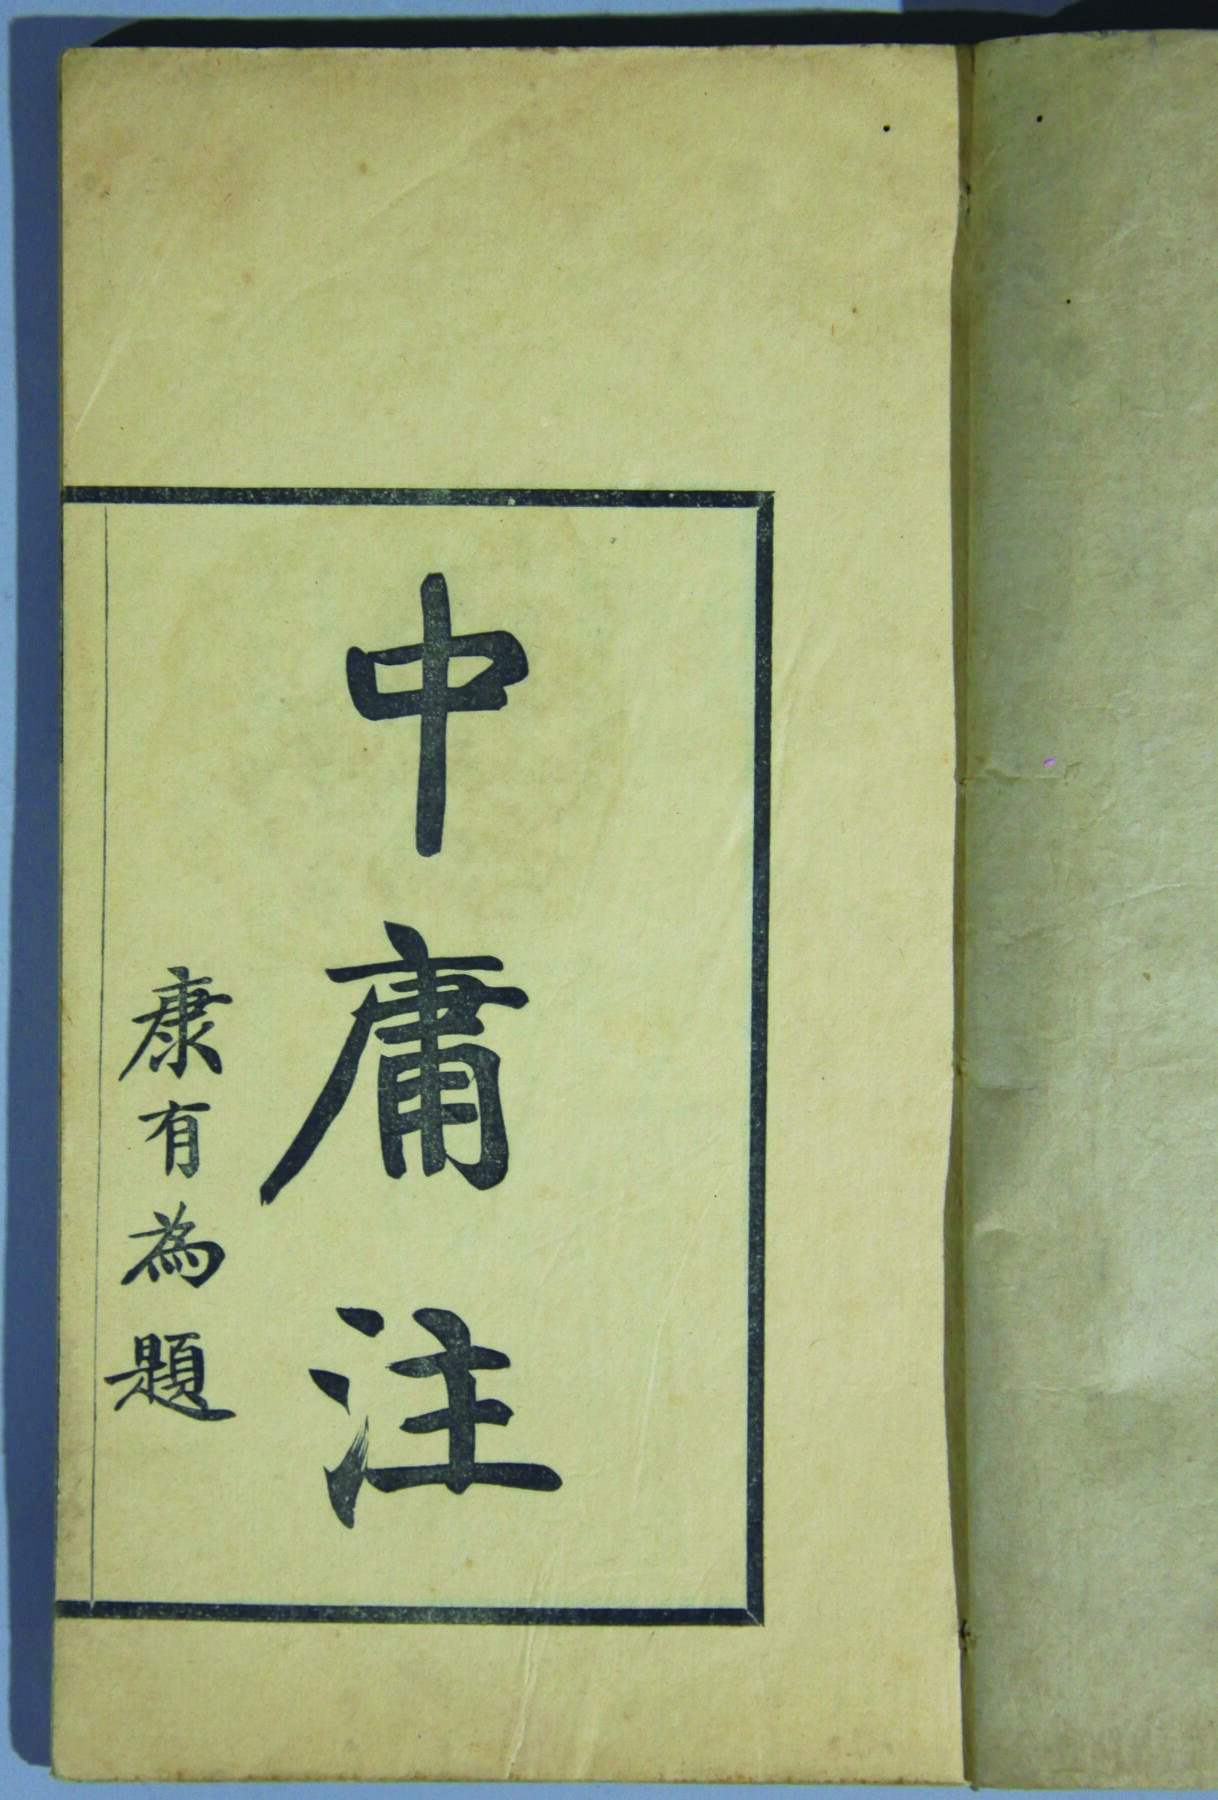 中庸注
康有為題